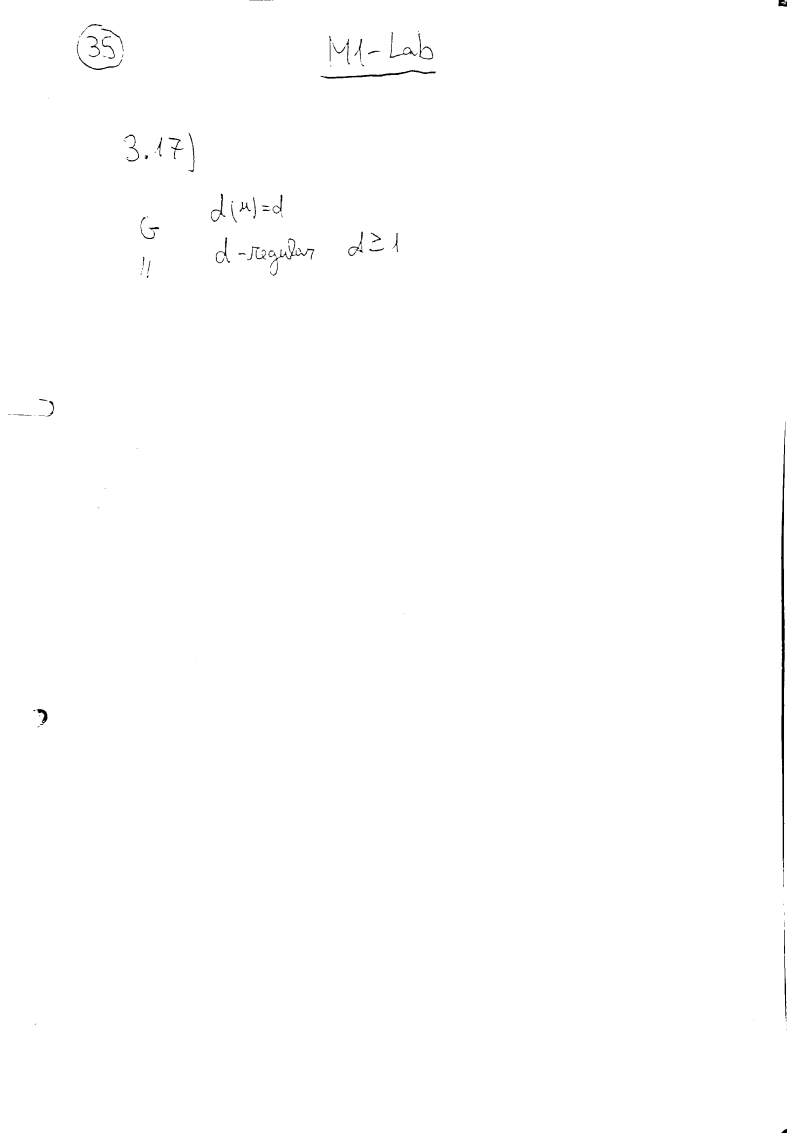 35 M1-Lab
3.17)
d(u)=d
G
d-regular d≥1
"